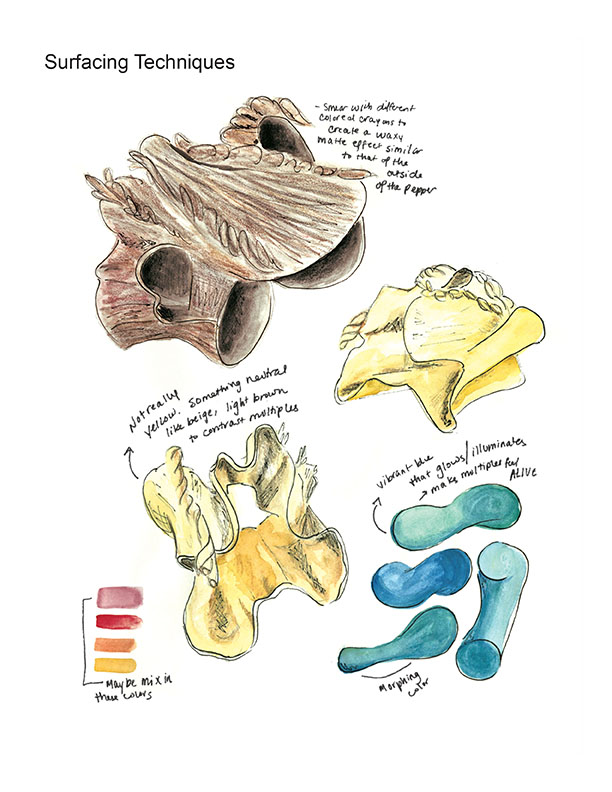 Surfacing Techniques
- Smear with different
colored crayons to
create a waxy
matte effect similar
to that of the
outside
of the pepper
Not really
yellow. Something neutral
like beige, light brown
to contrast multiples
vibrant blue
that glows/illuminates
→ makes multiples feel
ALIVE
Maybe mix in
these colors
Morphing
color